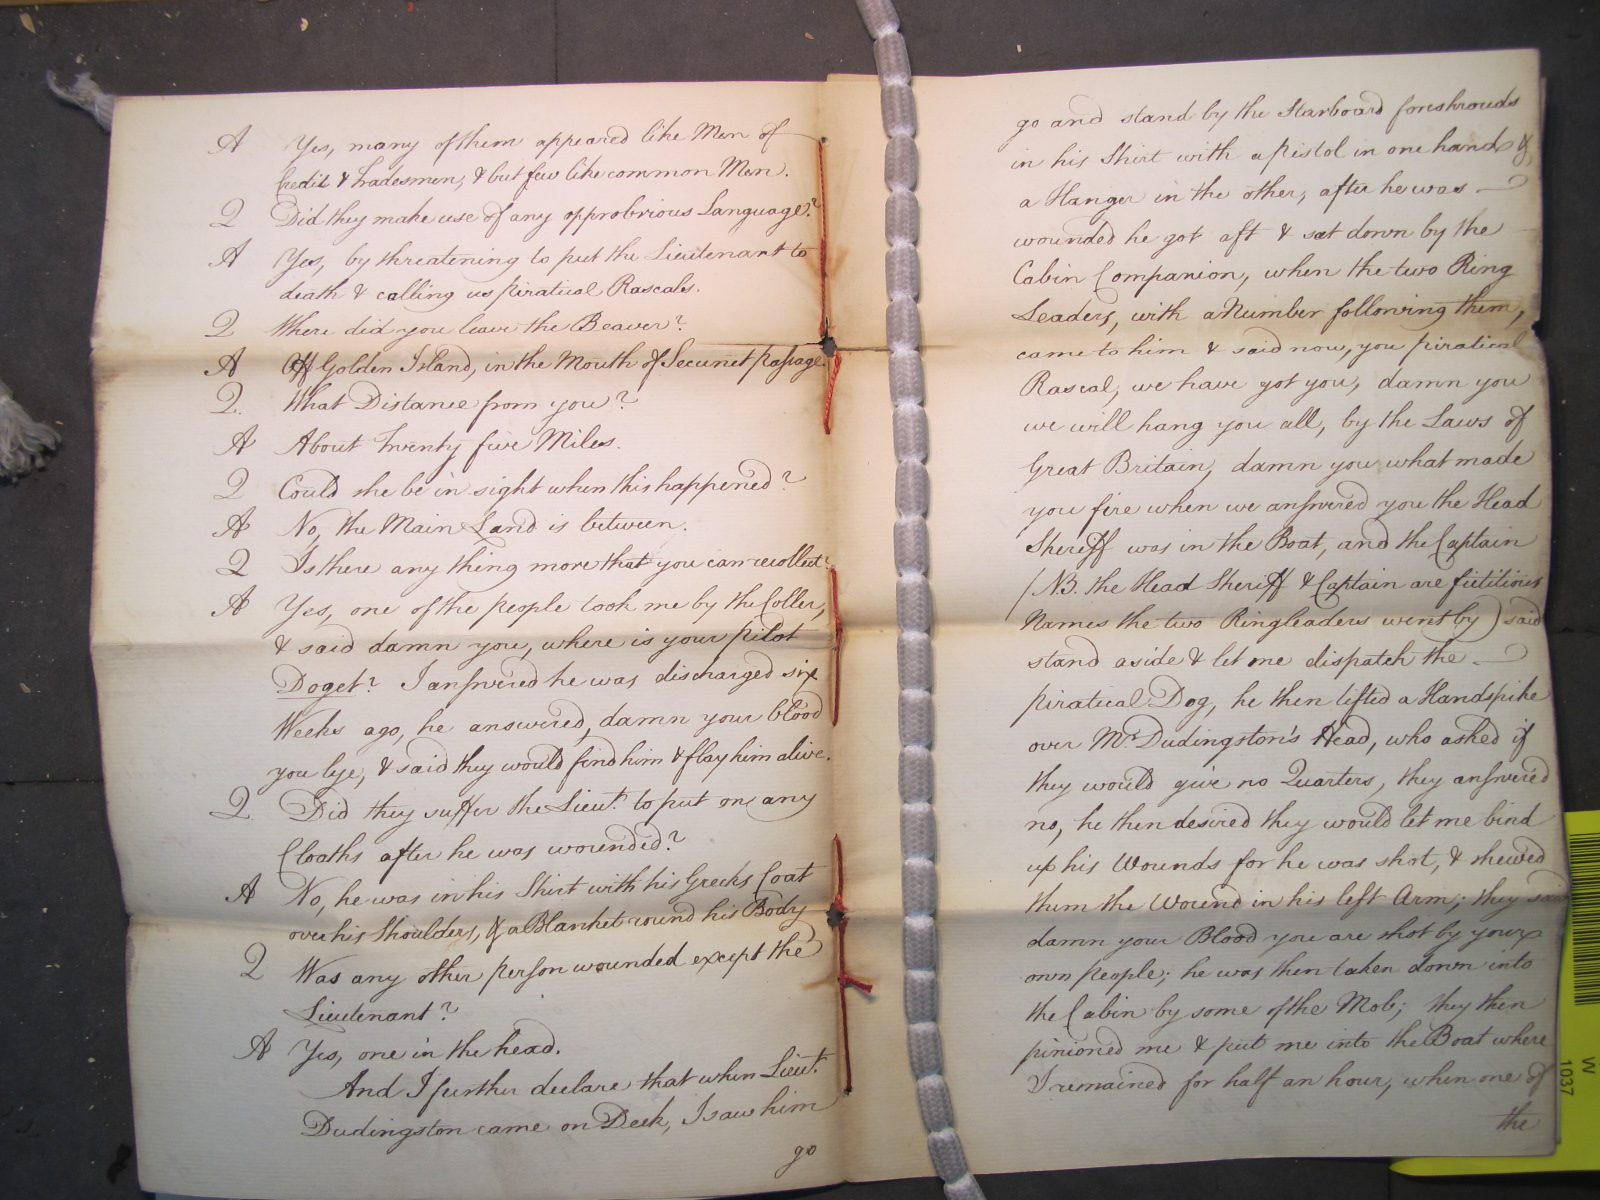 A Yes, many of them appeared like Men of
Credit & Tradesmen, & but few like common Men.
Q Did they make use of any opprobrious Language?
A Yes, by threatening to put the Lieutenant to
death & calling us piratical Rascals.
Q Where did you leave the Beaver?
A Off Golden Island, in the Mouth of Secunet passage.
Q. What Distance from you?
A About twenty five Miles.
Q Could she be in sight when this happened?
A No, the Main Land is between.
Q Is there any thing more that you can recollect?
A Yes, one of the people took me by the Coller,
& said damn you, where is your pilot
Doget? I answered he was discharged six
Weeks ago, he answered, damn your blood
you lye, & said they would find him & flay him alive.
Q. Did they suffer the Lieut. to put on any
Cloaths after he was wounded?
A No, he was in his Shirt with his Grecks Coat
over his Shoulders, & a Blanket round his Body
Q Was any other person wounded except the
Lieutenant?
A Yes, one in the head.
And I further declare that when Lieut.
Dudingston came on Deck, I saw him
go
go and stand by the Starboard foreshrouds
in his Shirt with a pistol in one hand &
a Hanger in the other, after he was
wounded he got aft & sat down by the
Cabin Companion, when the two Ring
Leaders, with a Number following them,
came to him & said now, you piratical
Rascal, we have got you, damn you
we will hang you all, by the Laws of
Great Britain, damn you what made
you fire when we answered you the Head
Sheriff was in the Boat, and the Captain
(NB. the Head Sheriff & Captain are fictitious
Names the two Ringleaders went by) said
stand aside & let me dispatch the
piratical Dog, he then lifted a Handspike
over Mr. Dudingston's Head, who asked if
they would give no Quarters, they answered
no, he then desired they would let me bind
up his Wounds for he was shot, & shewed
them the Wound in his left Arm; they said
damn your Blood you are shot by your
own people; he was then taken down into
the Cabin by some of the Mob; they then
pinioned me & put me into the Boat where
I remained for half an hour, when one of
the
W 1037